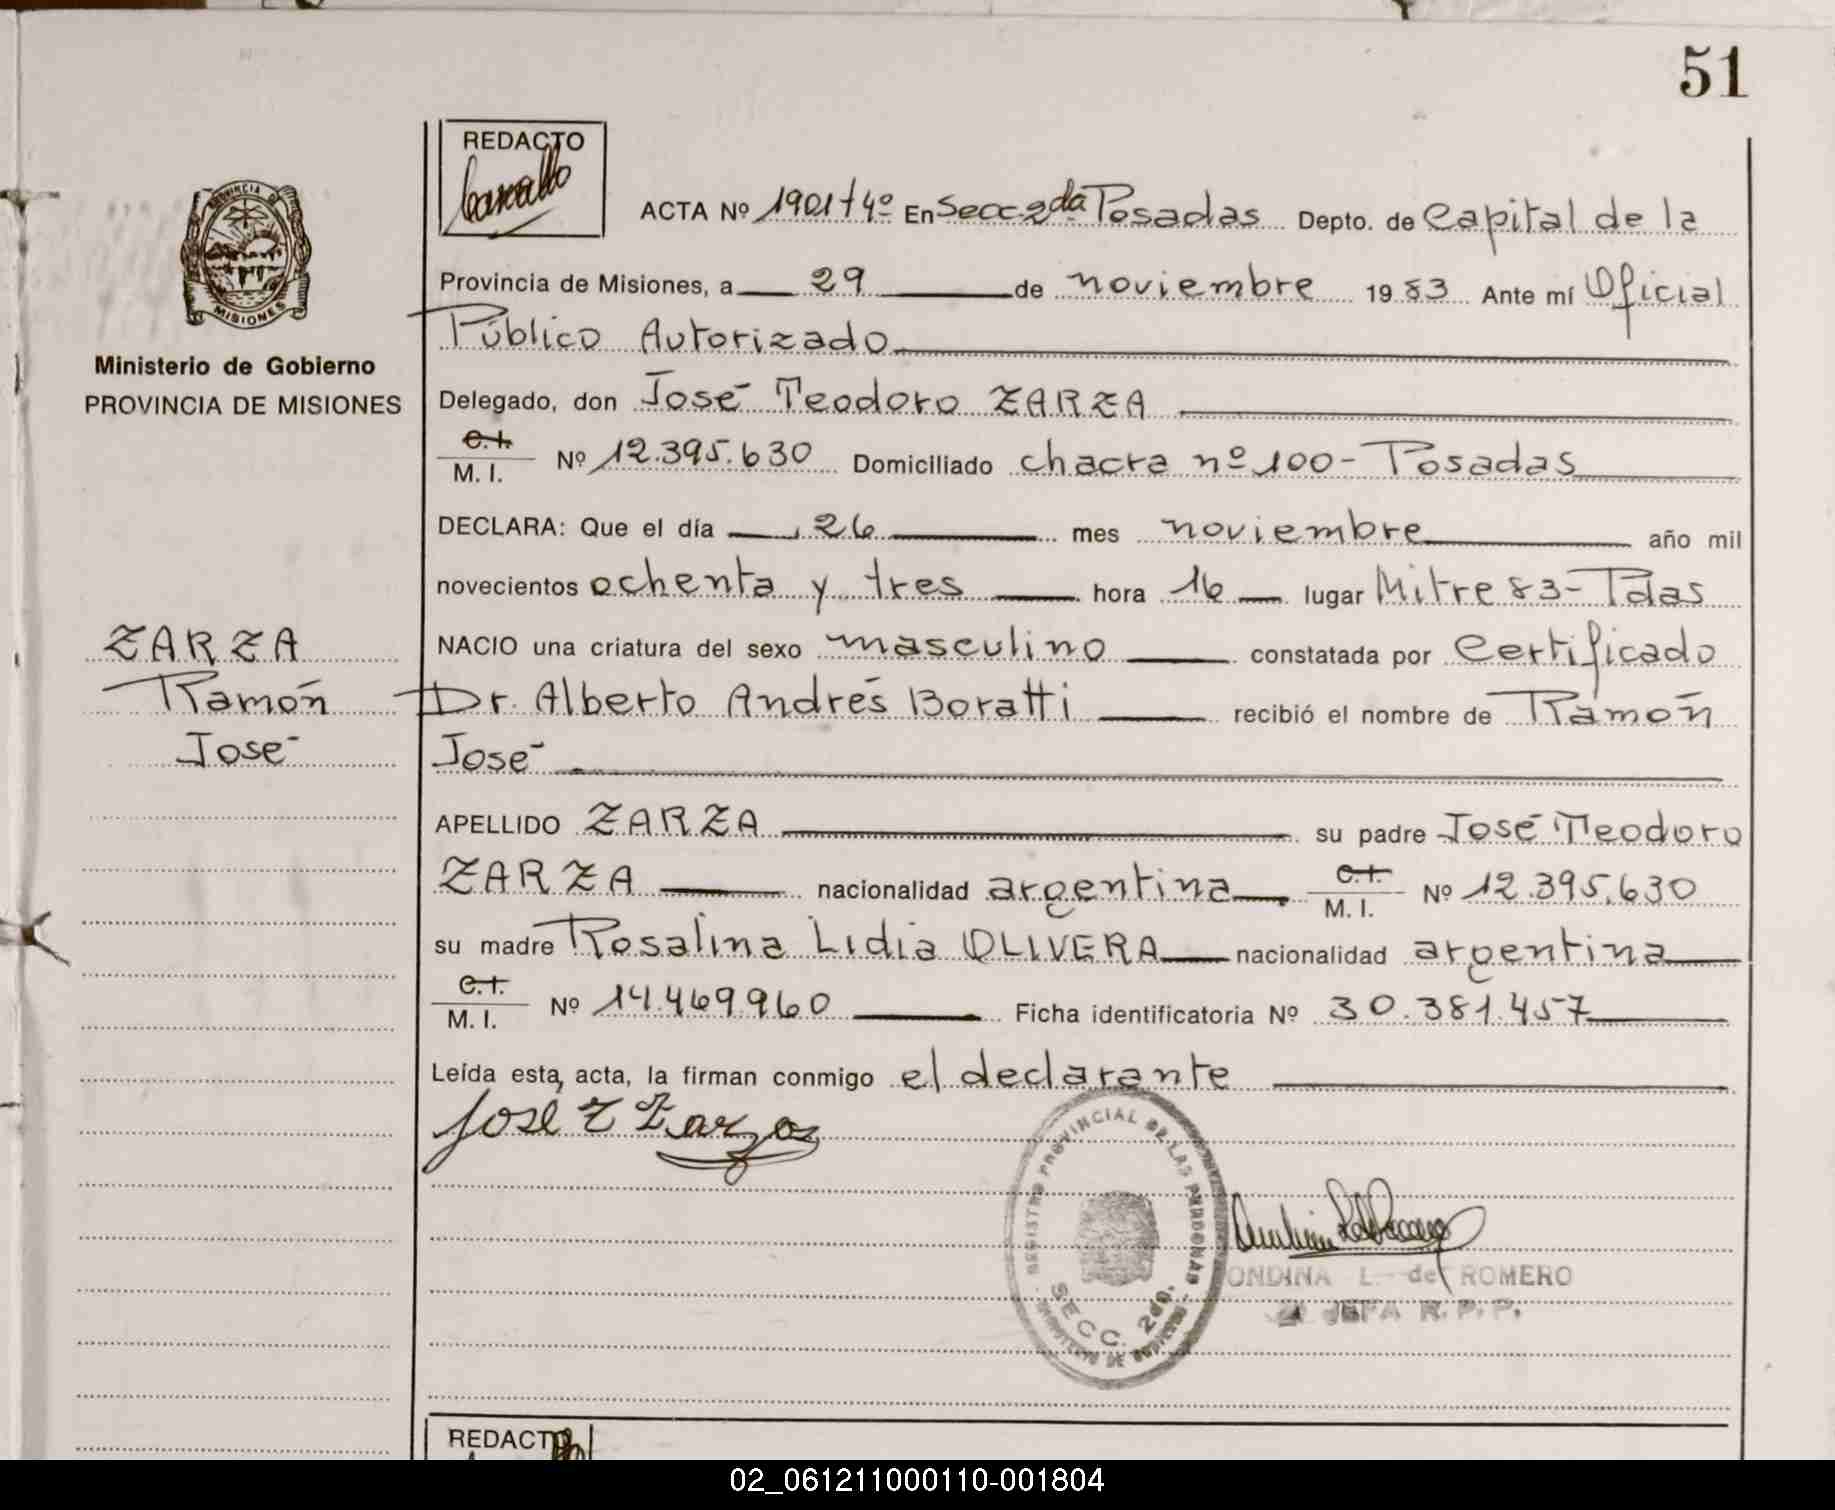 51
REDACTO
PROVINCIA DE
MISIONES
Ministerio de Gobierno
PROVINCIA DE MISIONES
ACTA Nº 1901 t 4º En Secc. 2da Posadas Depto. de Capital de la
Provincia de Misiones, a 29 de noviembre 1983 Ante mí Oficial
Público Autorizado
Delegado, don José Teodoro ZARZA
C.I.
M. I. Nº 12.395.630 Domiciliado chacra nº 100 - Posadas
DECLARA: Que el día 26 mes noviembre año mil
novecientos ochenta y tres hora 16 lugar Mitre 83 - Pdas
NACIO una criatura del sexo masculino constatada por Certificado
Dr. Alberto Andrés Boratti recibió el nombre de Ramón
José
ZARZA
Ramón
José
APELLIDO ZARZA su padre José Teodoro
ZARZA nacionalidad argentina C.I. M. I. Nº 12.395.630
su madre Rosalina Lidia OLIVERA nacionalidad argentina
C.I.
M. I. Nº 14.469.960 Ficha identificatoria Nº 30.381.457
Leída esta, acta, la firman conmigo el declarante
José T Zarza
REGISTRO PROVINCIAL DE LAS PERSONAS
SECC. 2da.
MINISTERIO DE GOBIERNO
ONDINA L. de ROMERO
JEFA R. P. P.
REDACTO
02_061211000110-001804